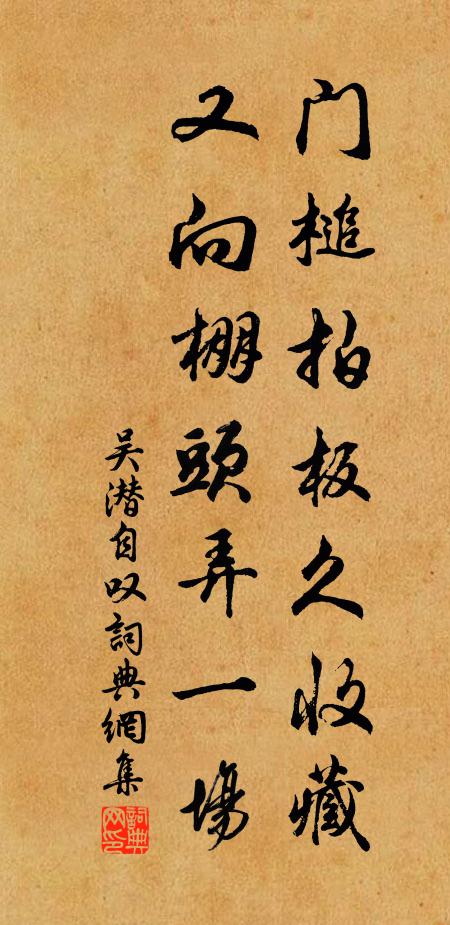 门槌拍板久收藏
又向棚頭弄一場
吴潜自叹詞典網集
詞典網印